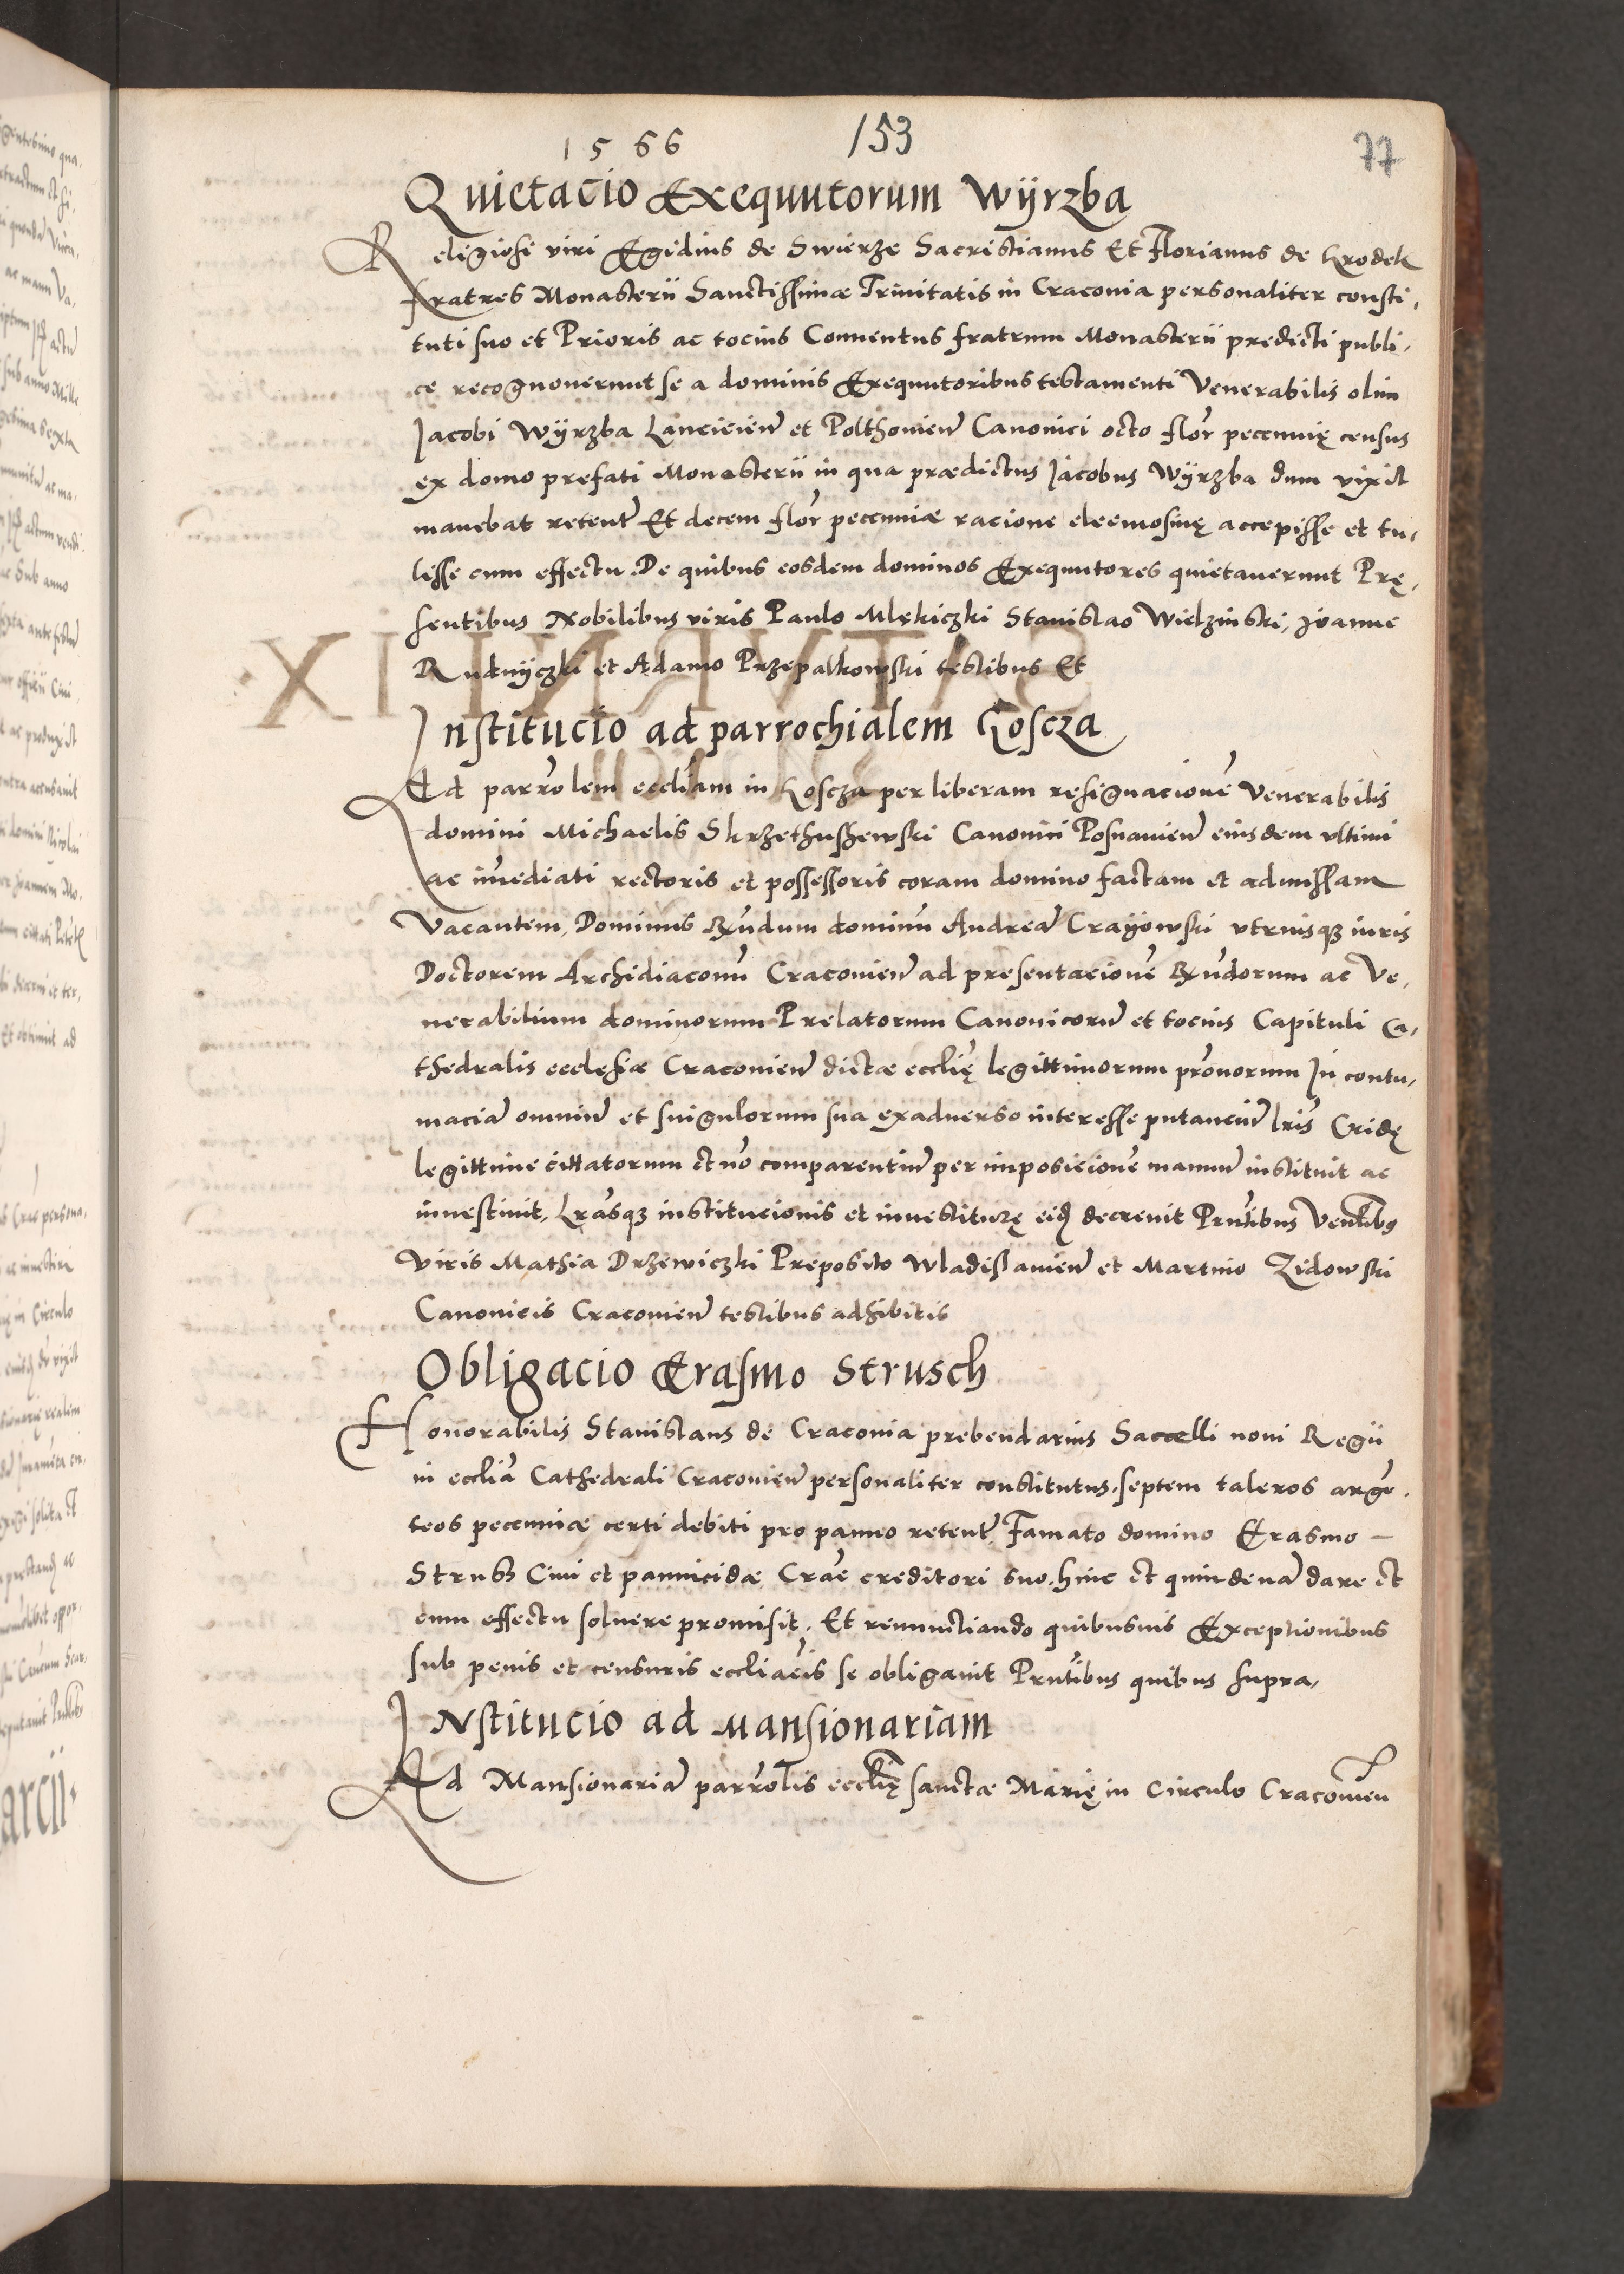 1566
153
77
Quietacio Exequutorum Wÿrzba
Religiosi viri Egidius de Swierze Sacristianus Et Florianus de Krodek
fratres Monasterii Sanctissimæ Trinitatis in Craconia personaliter consti,
tuti suo et Prioris ac tocius Conuentus fratrum Monasterii predicti publi,
ce recognouerunt se a dominis Exequutoribus testamenti Venerabilis olim
Jacobi Wÿrzba Lancicien̄ et Polthouien̄ Canonici octo flor̄ pecunię census
ex domo prefati Monasterii in qua prædictus Jacobus Wÿrzba dum vixit
manebat retent̄ Et decem flor̄ pecuniæ racione eleemosinę accepisse et tu,
lisse cum effectu. De quibus eosdem dominos Exequutores quietauerunt Prę,
sentibus Nobilibus viris Paulo Mlękiczki Stanislao Wielzinski, Joanne
Rudnÿczki et Adamo Przepalkowski testibus Et
Institucio ad parrochialem Koscza
Ad parrōlem eccliām in Koscza per liberam resignacionē Venerabilis
domini Michaelis Skrzethuskewski Canonici Posnanien̄ eiusdem vltimi
ac im̄ediati rectoris et possessoris coram domino factam et admissam
Vacantem, Dominus Rn̄dum dominū Andreā Crayowski vtriusqȝ iuris
Doctorem Archidiaconū Craconien̄ ad presentacionē Rn̄dorum ac Ve,
nerabilium dominorum Prelatorum Canonicorū et tocius Capituli Ca,
thedralis ecclesiæ Craconien̄ dictæ ecclię legittimorum pronorum In contu,
maciā omniū et singulorum sua exaduerso interesse putanciū lrīs Cridę
legittime cittatorum et nō comparentiū per imposicionē manuū instituit ac
inuestiuit, Lrāsqȝ institucionis et inuesticurę eid̄ decreuit Prn̄tibus Ven̄libus
viris Mathia Drzewiczki Preposito Wladislauien̄ et Martino Zidowski
Canonicis Craconien̄ testibus adhibitis
Obligacio Erasmo Strusch
Honorabilis Stanislaus de Craconia prebendarius Saccelli noui Regii
in eccliā Cathedrali Craconien̄ personaliter constitutus, septem taleros argē,
teos pecuniæ certi debiti pro panno retent̄ Famato domino Erasmo —
Strusz Ciui et pannicidæ Crac̄ creditori suo, hinc et quindenā dare et
cum effectu soluere promisit. Et renunctiando quibusuis Exceptionibus
sub penis et censuris eccliācis se obligauit Prn̄tibus quibus supra,
INstitucio ad Mansionariam
Ad Mansionariā parrōlis ecclię sanctæ Marię in Circulo Craconien̄